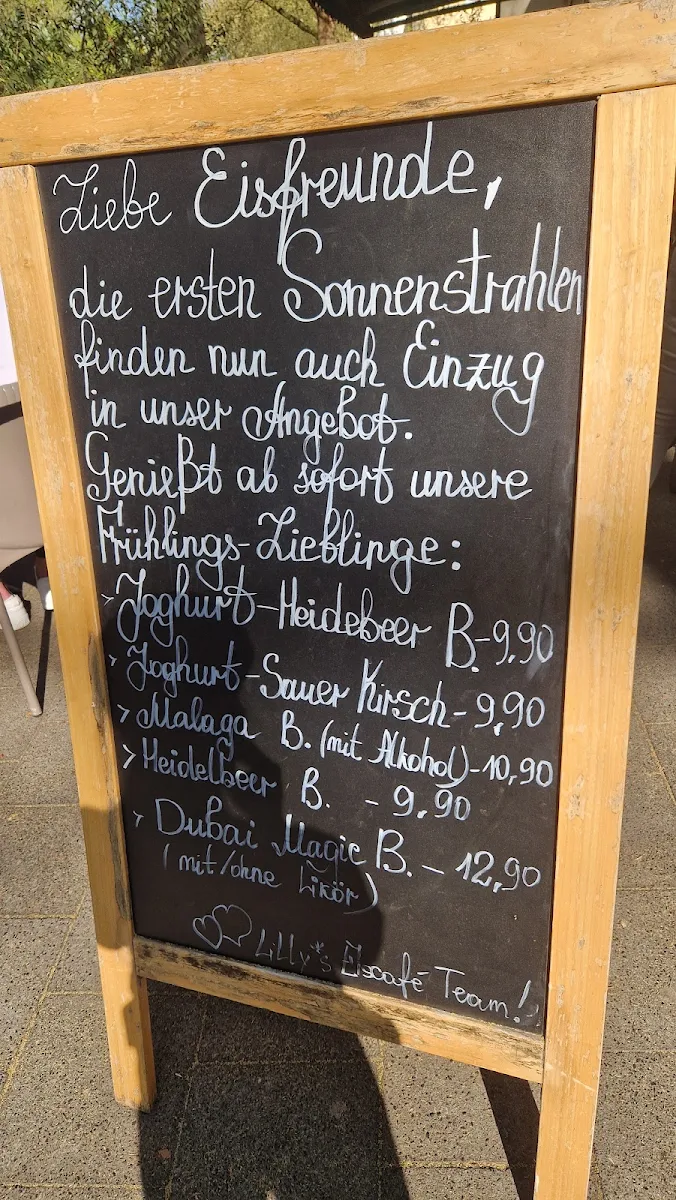 Liebe Eisfreunde,
die ersten Sonnenstrahlen
finden nun auch Einzug
in unser Angebot.
Genießt ab sofort unsere
Frühlings-Lieblinge:
> Joghurt-Heidebeer B.-9,90
> Joghurt-Sauer Kirsch-9,90
> Malaga B. (mit Alkohol)-10,90
> Heidelbeer B. - 9,90
> Dubai Magic B. - 12,90
(mit/ohne Likör)
Lilly*s Eiscafé Team!